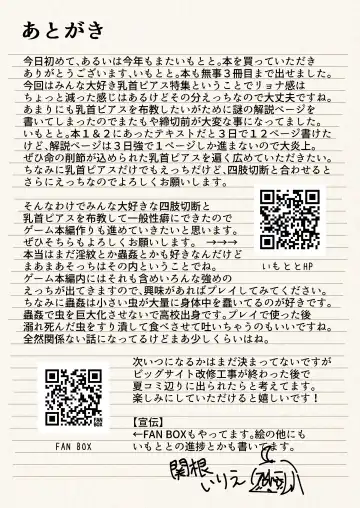 あとがき
今日初めて、あるいは今年もまたいもとと。本を買っていただき
ありがとうございます、いもとと。本も無事３冊目まで出せました。
今回はみんな大好き乳首ピアス特集ということでリョナ感は
ちょっと減った感じはあるけどその分えっちなので大丈夫ですね。
あまりにも乳首ピアスを布教したいがために謎の解説ページを
書いてしまったのでまたもや締切前が大変な事になってました。
いもとと。本１＆２にあったテキストだと３日で１２ページ書けた
けど、解説ページは３日強で１ページしか進まないので大炎上。
ぜひ命の削節が込められた乳首ピアスを遍く広めていただきたい。
ちなみに乳首ピアスだけでもえっちだけど、四肢切断と合わせると
さらにえっちなのでよろしくお願いします。
そんなわけでみんな大好きな四肢切断と
乳首ピアスを布教して一般性癖にできたので
ゲーム本編作りも進めていきたいと思います。
ぜひそちらもよろしくお願いします。 →→→
本当はまだ淫紋とか蟲姦とかも好きなんだけど
まあまあそっちはその内ということでね。
いもととHP
ゲーム本編内にはそれも含めいろんな強めの
えっちが出てきますので、興味があればプレイしてみてください。
ちなみに蟲姦は小さい虫が大量に身体中を蠢いてるのが好きです。
蟲姦で虫を巨大化させないで高校出身です。プレイで使った後
溺れ死んだ虫をすり潰して食べさせて吐いちゃうのもいいですね。
全然関係ない話になってるけどまあ少しくらいはね。
次いつになるかはまだ決まってないですが
ビッグサイト改修工事が終わった後で
夏コミ辺りに出られたらと考えてます。
楽しみにしていただけると嬉しいです！
【宣伝】
←FAN BOXもやってます。絵の他にも
いもととの進捗とかも書いてます。
FAN BOX
関根
いりえ